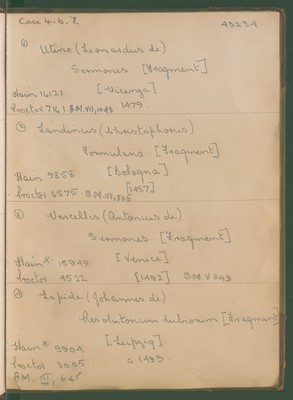 Case 4.b.7. 43234.
(1) Utino (Leonardus de)
Sermones [Fragment]
Hain 16121 [Vicenza]
Proctor 7161. B.M. VII, 1048 1479.
(2) Landinus (Christophorus)
Formulario [Fragment]
Hain 9858 [Bologna]
Proctor 6575. B.M. VI, [1487]
(3) Vercellis (Antonius de)
Sermones [Fragment]
Hain* 15949 [Venice]
Proctor 4522 [1492] B.M. V
(4) Lapide (Johannes de)
Resolutorium dubiorum [Fragment]
Hain* 9904 [Leipzig]
Proctor 3005 c. 1493
B.M. III, 645